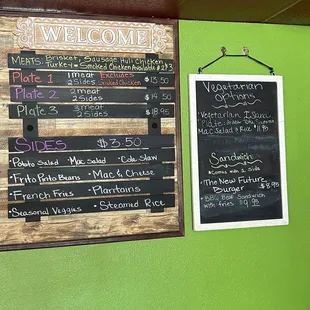 WELCOME
MEATS: Brisket, Sausage, Huli Chicken
Turkey Smoked Chicken Available $2
Plate 1 1meat 2Sides Excludes $13.50
Plate 2 2meat 2Sides $14.50
Plate 3 3meat 2Sides $18.95
SIDES $3.50
•Potato Salad •Mac Salad •Cole Slaw
•Frito Pinto Beans •Mac & Cheese
•French Fries •Plantains
•Seasonal Veggies •Steamed Rice
Vegetarian
Options
•Vegetarian Island
Plate
Mac Salad & Rice
Sandwich
Comes with a side
•The New Future
Burger $8.95
•BBQ Beef Sandwich
with fries